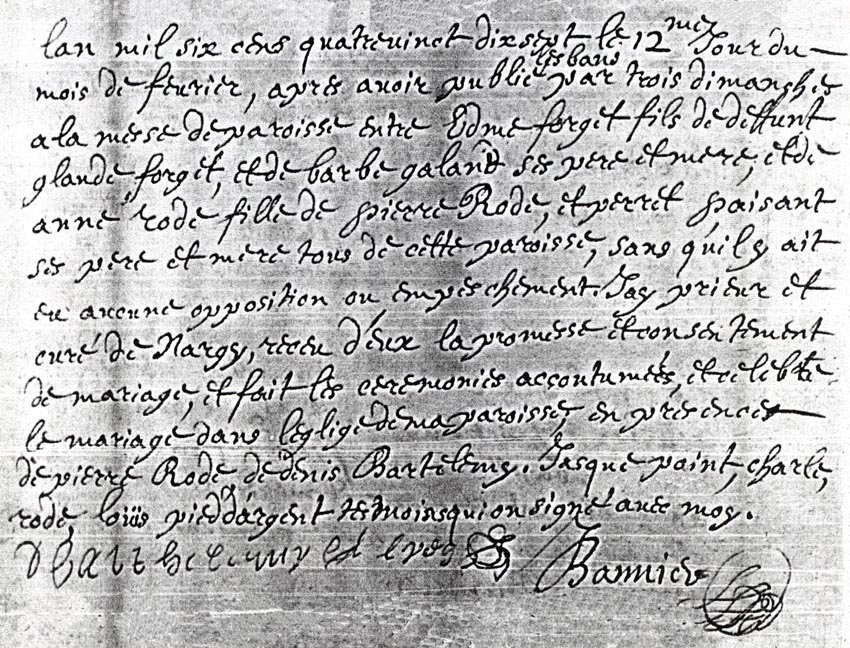 lan mil six cens quatrevinct dix sept le 12mez Jour du
mois de feurier, apres auoir publié les bans par trois dimanches
a la messe de paroisse entre Edme forget fils de deffunt
glaude forget, et de barbe galant ses pere et mere, et de
anne rode fille de pierre Rode, et perret paisant
ses pere et mere tous de cette paroisse, sans quil y ait
eu aucune opposition ou empeschement. Jay prieur et
curé de Nargy, receu d'eux la promesse et consentement
de mariage, et fait les ceremonies accoutumées, et celebré
le mariage dans leglige de ma paroisse, en presences
de pierre Rode, de denis Bartelemy. Jasque paint, charle,
rode, loüis pied dargent temoins qui on signé auec moy.
D barthelemy
Bannier